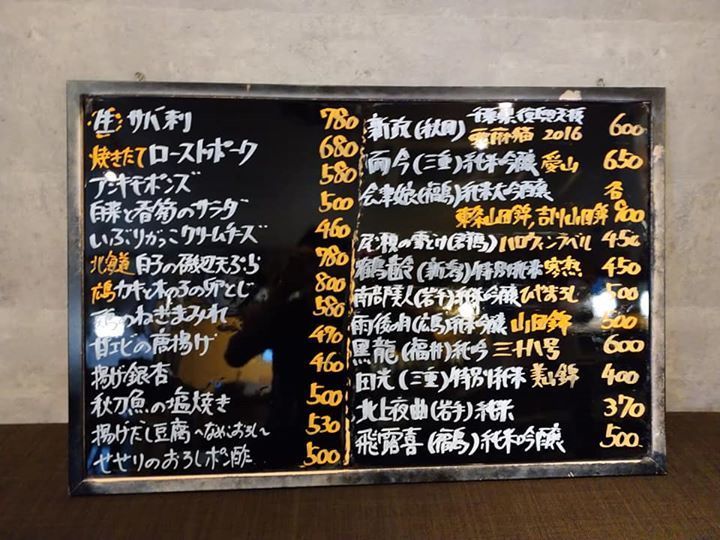 生サバ刺 780
焼きたてローストポーク 680
アンキモポンズ 580
白菜と春菊のサラダ 500
いぶりがっこクリームチーズ 460
北海道 白子の磯辺天ぷら 780
広島カキときのこの卵とじ 800
ねぎまみれ 580
甘エビの唐揚げ 490
揚げ銀杏 460
秋刀魚の塩焼き 500
揚げだし豆腐〜なめこおろし〜 530
せせりのおろしポン酢 500
新政(秋田) 2016 600
而今(三重)純米吟醸 愛山 650
会津娘(福島)純米大吟醸
東条山田錦,吉川山田錦 900
尾瀬の雪どけ(群馬)ハロウィンラベル 450
鶴齢(新潟)特別純米 寒熟 450
南部美人(岩手)純米吟醸 ひやおろし 500
雨後の月(広島)純米吟醸 山田錦 500
黒龍(福井)純吟 三十八号 600
田光(三重)特別純米 美山錦 400
北上夜曲(岩手)純米 370
飛露喜(福島)純米吟醸 500